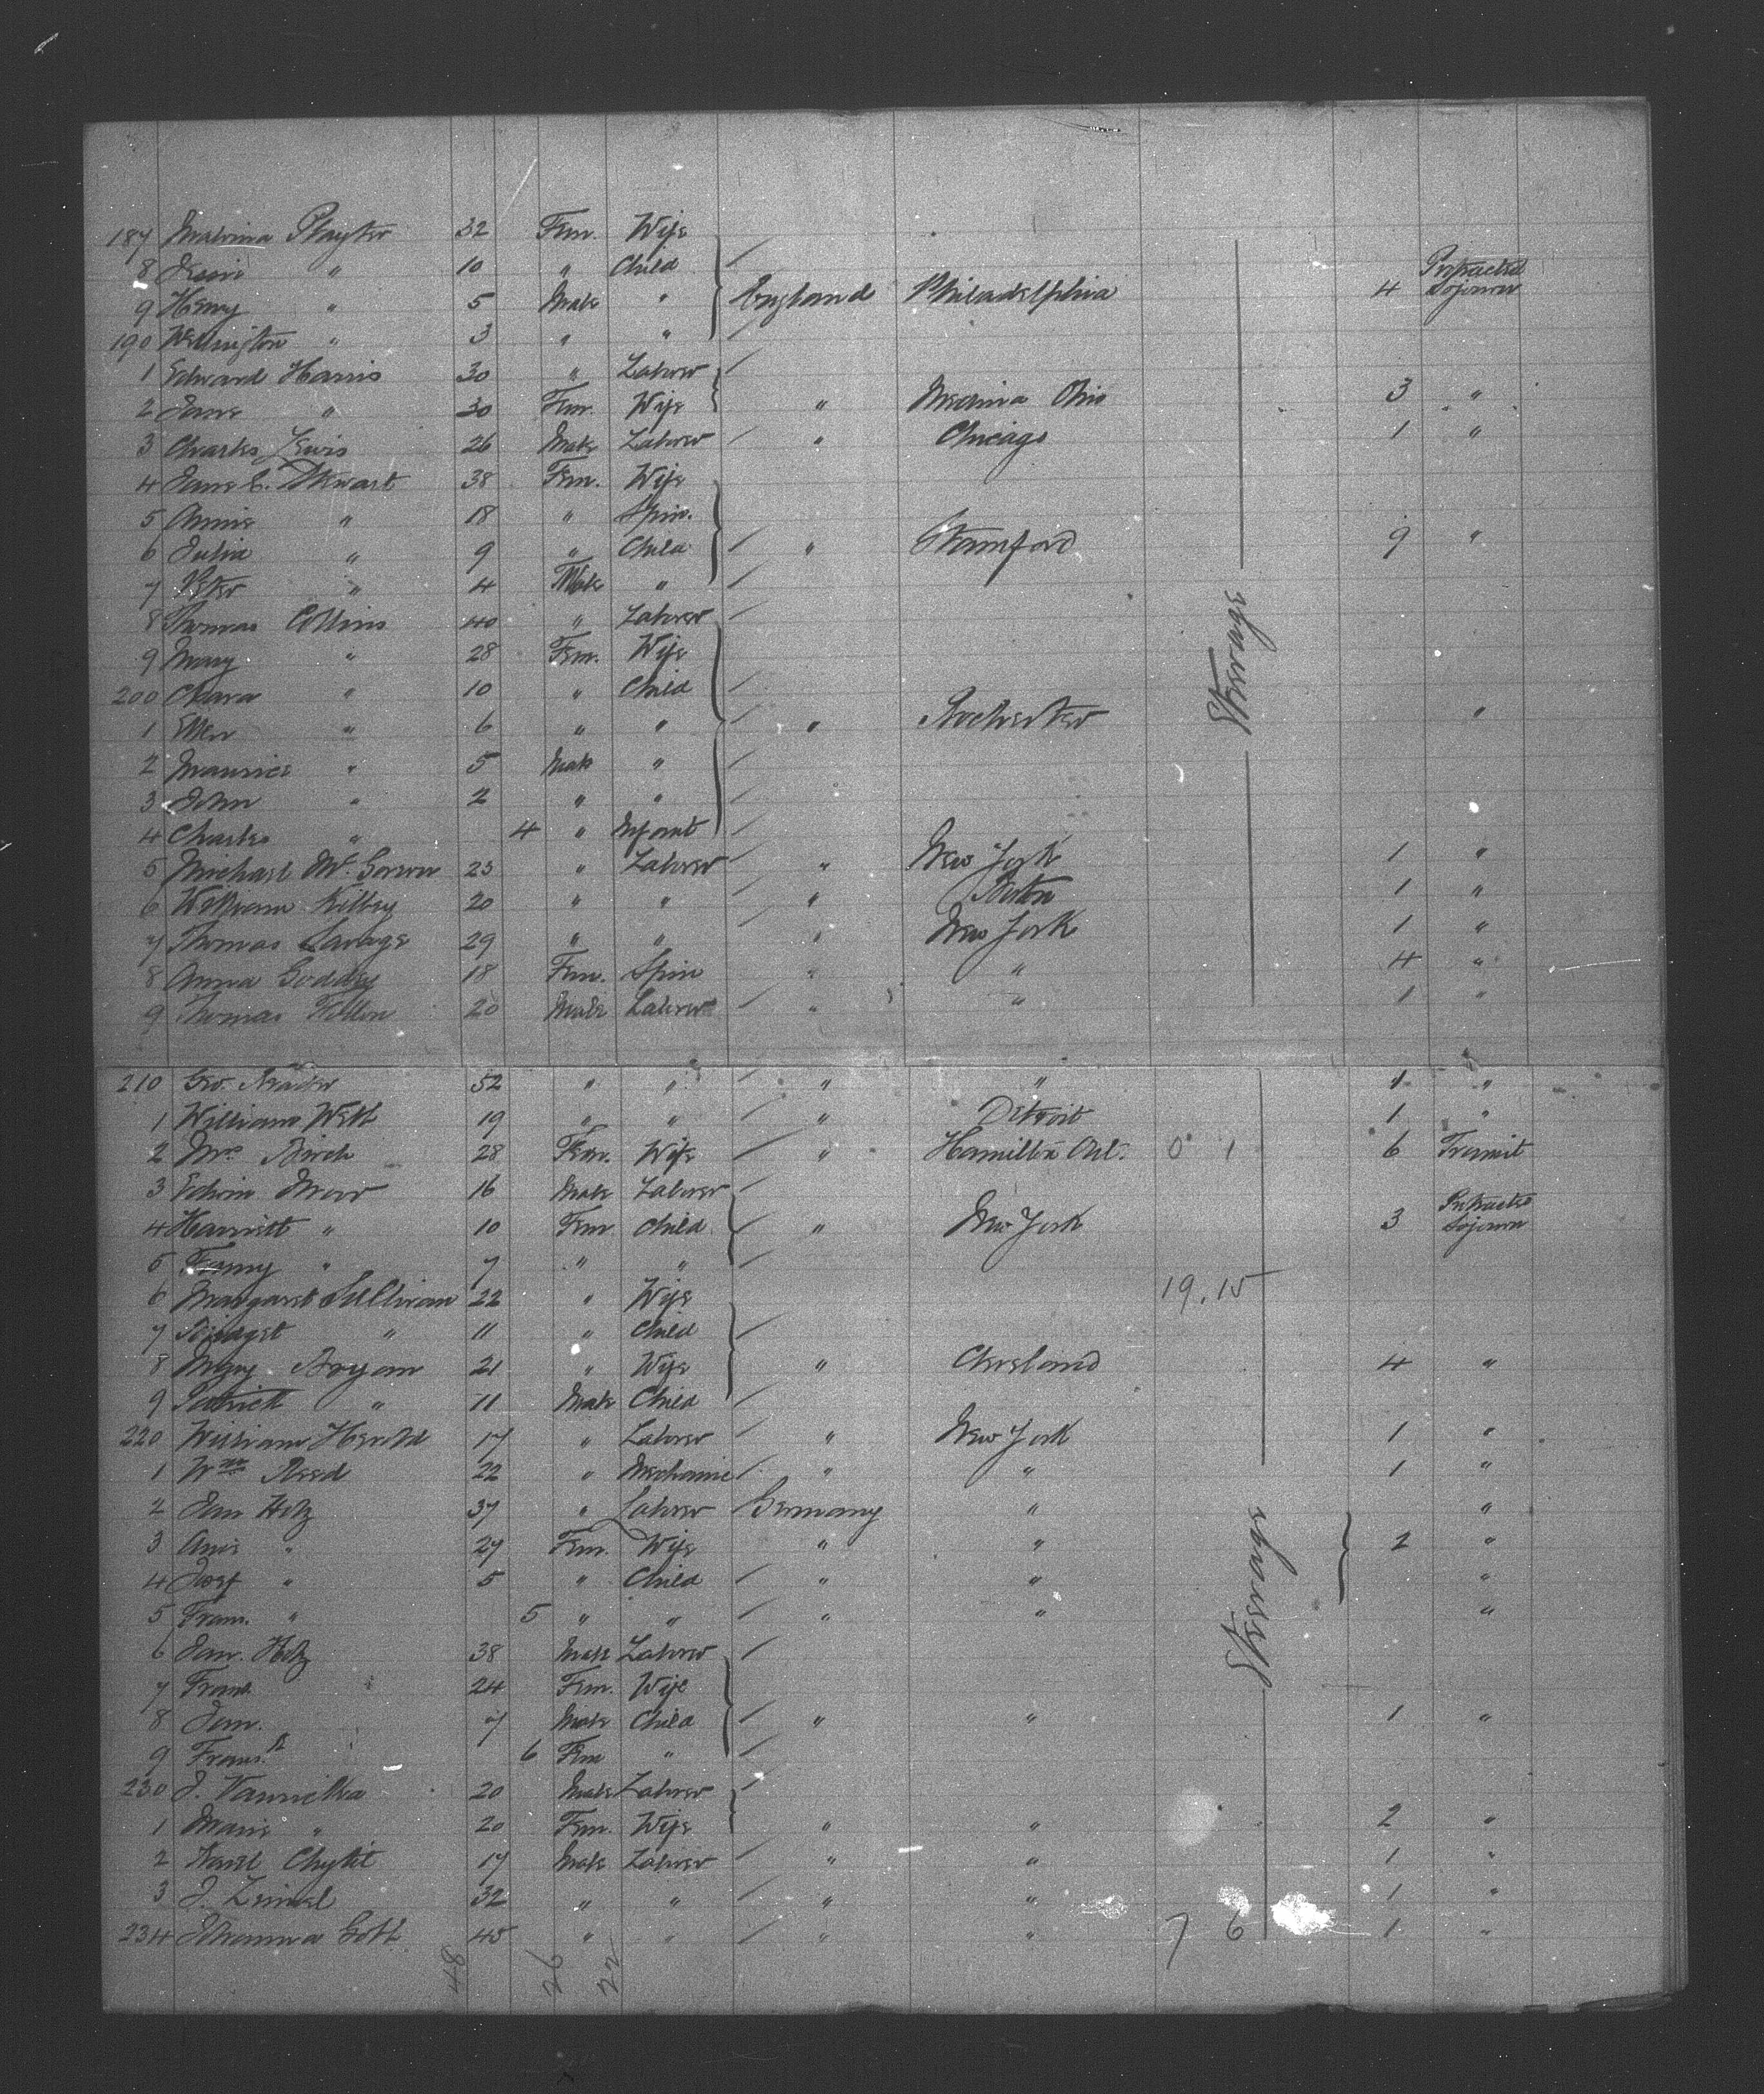 187 Malvina Playter 32 Fem. Wife
8 " 10 " Child
9 Henry " 5 Male " England Philadelphia 4 Protracted Sojourn
190 Wellington " 3 " "
1 Edward Harris 30 " Laborer
2 Jane " 30 Fem. Wife " Medina Ohio 3 "
3 Charles Lewis 26 Male Laborer " Chicago 1 "
4 Jane E. Stewart 38 Fem. Wife
5 Annie " 18 " Spin.
6 Julia " 9 " Child " Stamford 9 "
7 Peter " 4 Male "
8 Thomas Collins 40 " Laborer
9 Mary " 28 Fem. Wife
200 Clara " 10 " Child
1 Ellen " 6 " " " Rochester "
2 Maurice " 5 Male "
3 John " 2 " "
4 Charles " 4 " Infant
5 Michael Mc. 23 " Laborer " New York 1 "
6 William Kilbey 20 " " " Boston 1 "
7 Thomas Savage 29 " " " New York 1 "
8 Anna 18 Fem. Spin " " 4 "
9 Thomas 20 Male Laborer " " 1 "
Steerage
210 Geo. 52 " " " " 1 "
1 William Webb 19 " " " Detroit 1 "
2 Mrs Birch 28 Fem. Wife " Hamilton Ont. 0 1 6 Transit
3 Edwin 16 Male Laborer
4 Harriett " 10 Fem Child " New York 3 Protracted Sojourn
5 Fanny " 7 " "
6 Margaret Sullivan 22 " Wife 19.15
7 Bridget " 11 " Child
8 Mary Bryan 21 " Wife " Cleveland 4 "
9 Patrick " 11 Male Child
220 William 17 " Laborer " New York 1 "
1 Wm Reed 22 " Mechanic " " 1 "
2 Jan Hitz 37 " Laborer Germany " "
3 " 27 Fem. Wife " " 2 "
4 Josef " 5 " Child " " "
5 Fran. " 5 " " " " "
6 Jan. Hitz 38 Male Laborer
7 24 Fem. Wife
8 Jan. 7 Male Child " " 1 "
9 6 Fem "
230 J. 20 Male Laborer
1 Marie " 20 Fem. Wife " " 2 "
2 Karel Chytil 17 Male Laborer " " 1 "
3 J. 32 " " " " 1 "
234 45 " " " " 7 6 1 "
Steerage
48 26 22